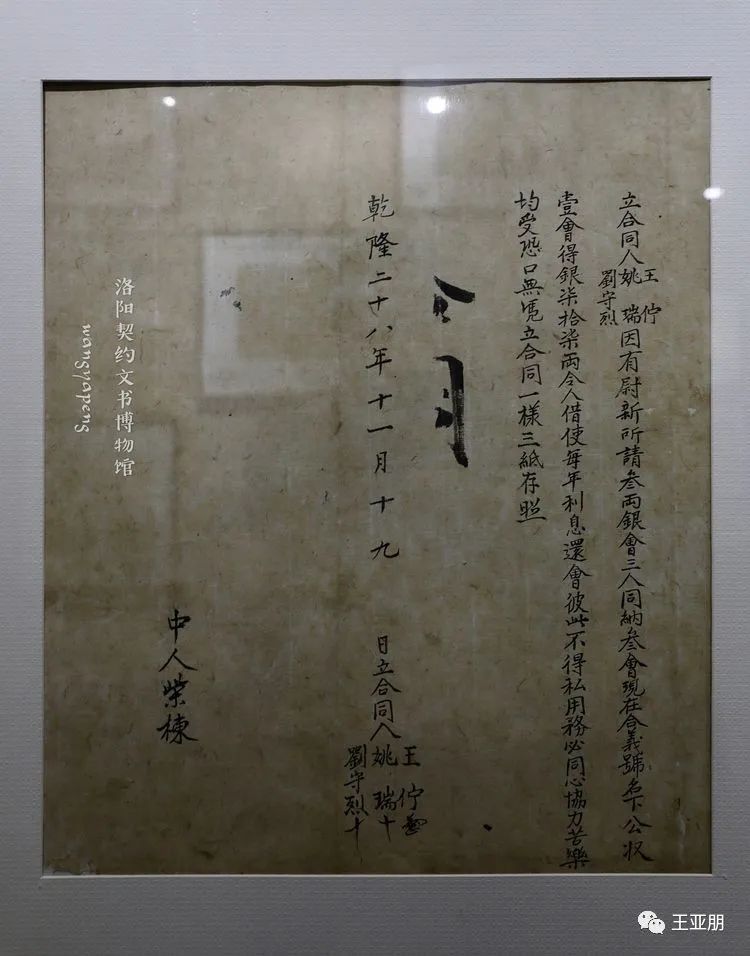 立合同人姚瑞王佇劉守烈因有尉新所請叁両銀會三人同納叁會現在合義號名下公収
壹會得銀柒拾柒両令人借使每年利息還會彼此不得私用務必同心協力苦樂
均受恐口無凴立合同一樣三紙存照
合同
乾隆二十八年十一月十九日立合同人王佇姚瑞十劉守烈十
中人柴棟
洛阳契约文书博物馆
wangyapeng
王亚朋